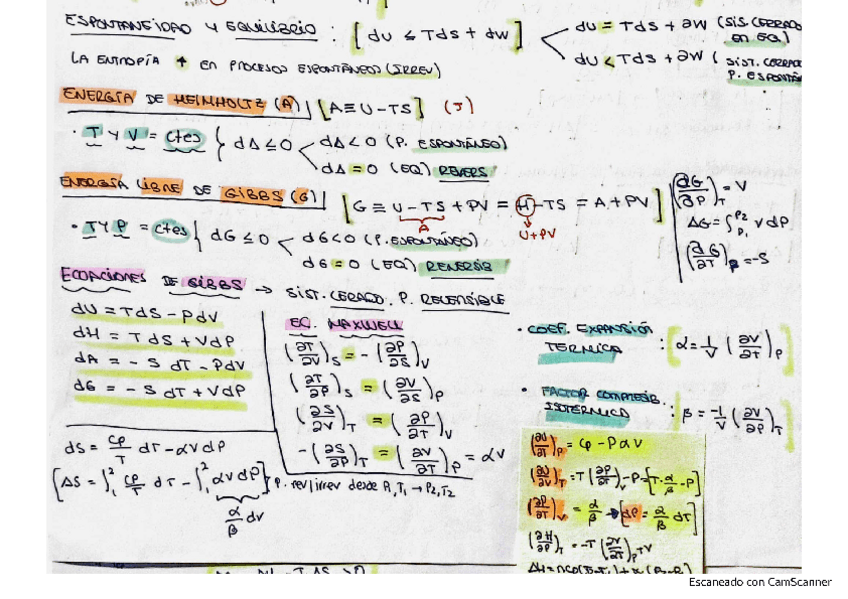 ESPONTANEIDAD Y EQUILIBRIO : [dU ≤ TdS + dW]
dU = TdS + ∂W (SIS. CERRADO EN EQ.)
dU < TdS + ∂W ( SIST. CERRADO P. ESPONTÁN
LA ENTROPÍA ↑ EN PROCESOS ESPONTÁNEOS (IRREV)
ENERGÍA DE HEINHOLTZ (A) | [A ≡ U - TS] (J)
· T Y V = Ctes { dA ≤ 0
dA < 0 (P. ESPONTÁNEO)
dA = 0 (EQ) REVERS
ENERGÍA LIBRE DE GIBBS (G) | [G ≡ U - TS + PV = H - TS = A + PV]
A
U + PV
· T Y P = ctes { dG ≤ 0
dG < 0 (P. ESPONTÁNEO)
dG = 0 (EQ) REVERSIB
(∂G/∂P)_T = V
ΔG = ∫_P₁^P₂ V dP
(∂G/∂T)_P = -S
ECUACIONES DE GIBBS → SIST. CERRADO. P. REVERSIBLE
dU = TdS - PdV
dH = TdS + VdP
dA = - S dT - PdV
dG = - S dT + VdP
EC. MAXWELL
(∂T/∂V)_S = - (∂P/∂S)_V
(∂T/∂P)_S = (∂V/∂S)_P
(∂S/∂V)_T = (∂P/∂T)_V
-(∂S/∂P)_T = (∂V/∂T)_P = αV
· COEF. EXPANSIÓN TERMICA : [α = 1/V (∂V/∂T)_P]
· FACTOR COMPRESIB. ISOTERMICO : [β = -1/V (∂V/∂P)_T]
dS = Cp/T dT - αVdP
[ΔS = ∫₁² Cp/T dT - ∫₁² αVdP] P. rev/irrev desde P₁,T₁ → P₂,T₂
α/β dV
(∂U/∂T)_P = Cp - PαV
(∂U/∂V)_T = T(∂P/∂T)_V - P = [T·α/β - P]
(∂P/∂T)_V = α/β → [dP = α/β dT]
(∂H/∂P)_T = -T(∂V/∂T)_P + V
Escaneado con CamScanner